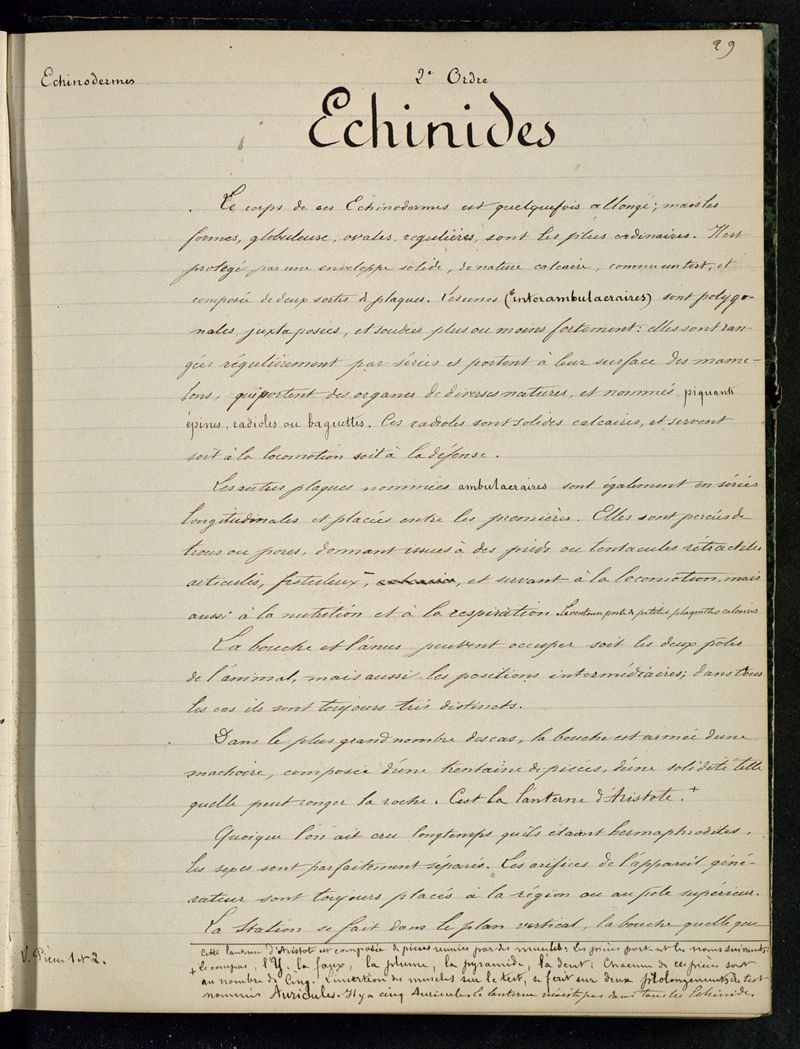 29
Echinodermes
2e Ordre
Echinides
Le corps de ces Echinodermes est quelquefois allongé; mais les
formes, globuleuse, ovales, regulières, sont les plus ordinaires. Il est
protégé par une enveloppe solide, de nature calcaire, comme un test, et
composée de deux sortes de plaques. Les unes (interambulacraires) sont polygo-
nales, juxtaposées, et soudées plus ou moins fortement: elles sont ran-
gées régulièrement par séries et portent à leur surface des mame-
lons, qui portent des organes de diverses natures, et nommés, piquants
épines, radioles ou baguettes. Ces radioles sont solides calcaires, et servent
soit à la locomotion soit à la défense.
Les autres plaques nommées ambulacraires sont également en séries
longitudinales et placées entre les premières. Elles sont percées de
trous ou pores, donnant issues à des pieds ou tentacules rétractiles
articulés, fistuleux, et servant à la locomotion, mais
aussi à la nutrition et à la respiration. La ventouse porte de petites plaquettes calcaires
La bouche et l'anus peuvent occuper soit les deux pôles
de l'animal, mais aussi les positions intermédiaires; dans tous
les cas ils sont toujours très distincts.
Dans le plus grand nombre des cas, la bouche est armée d'une
machoire, composée d'une trentaine de pièces, d'une solidité telle
quelle peut ronger la roche. C'est la lanterne d'Aristote.+
Quoique l'on ait cru longtemps qu'ils étaient hermaphrodites,
les sexes sont parfaitement séparés. Les orifices de l'appareil géné-
rateur sont toujours placés à la région ou au pôle supérieur.
La Station se fait dans le plan vertical, la bouche quelle que
V. Pieces 1 et 2.
Cette lanterne d'Aristote est composée de pieces reunies par des muscles: Les pièces portent les noms suivants:
+ le compas, l'Y, la faux, la plume, la pyramide, la dent; Chacune de ces pièces sont
au nombre de Cinq. L'insertion des muscles sur le test, se fait sur deux prolongements du test
nommés Auricules. Il y a cinq Auricules la lanterne n'existe pas dans tous les Echinides